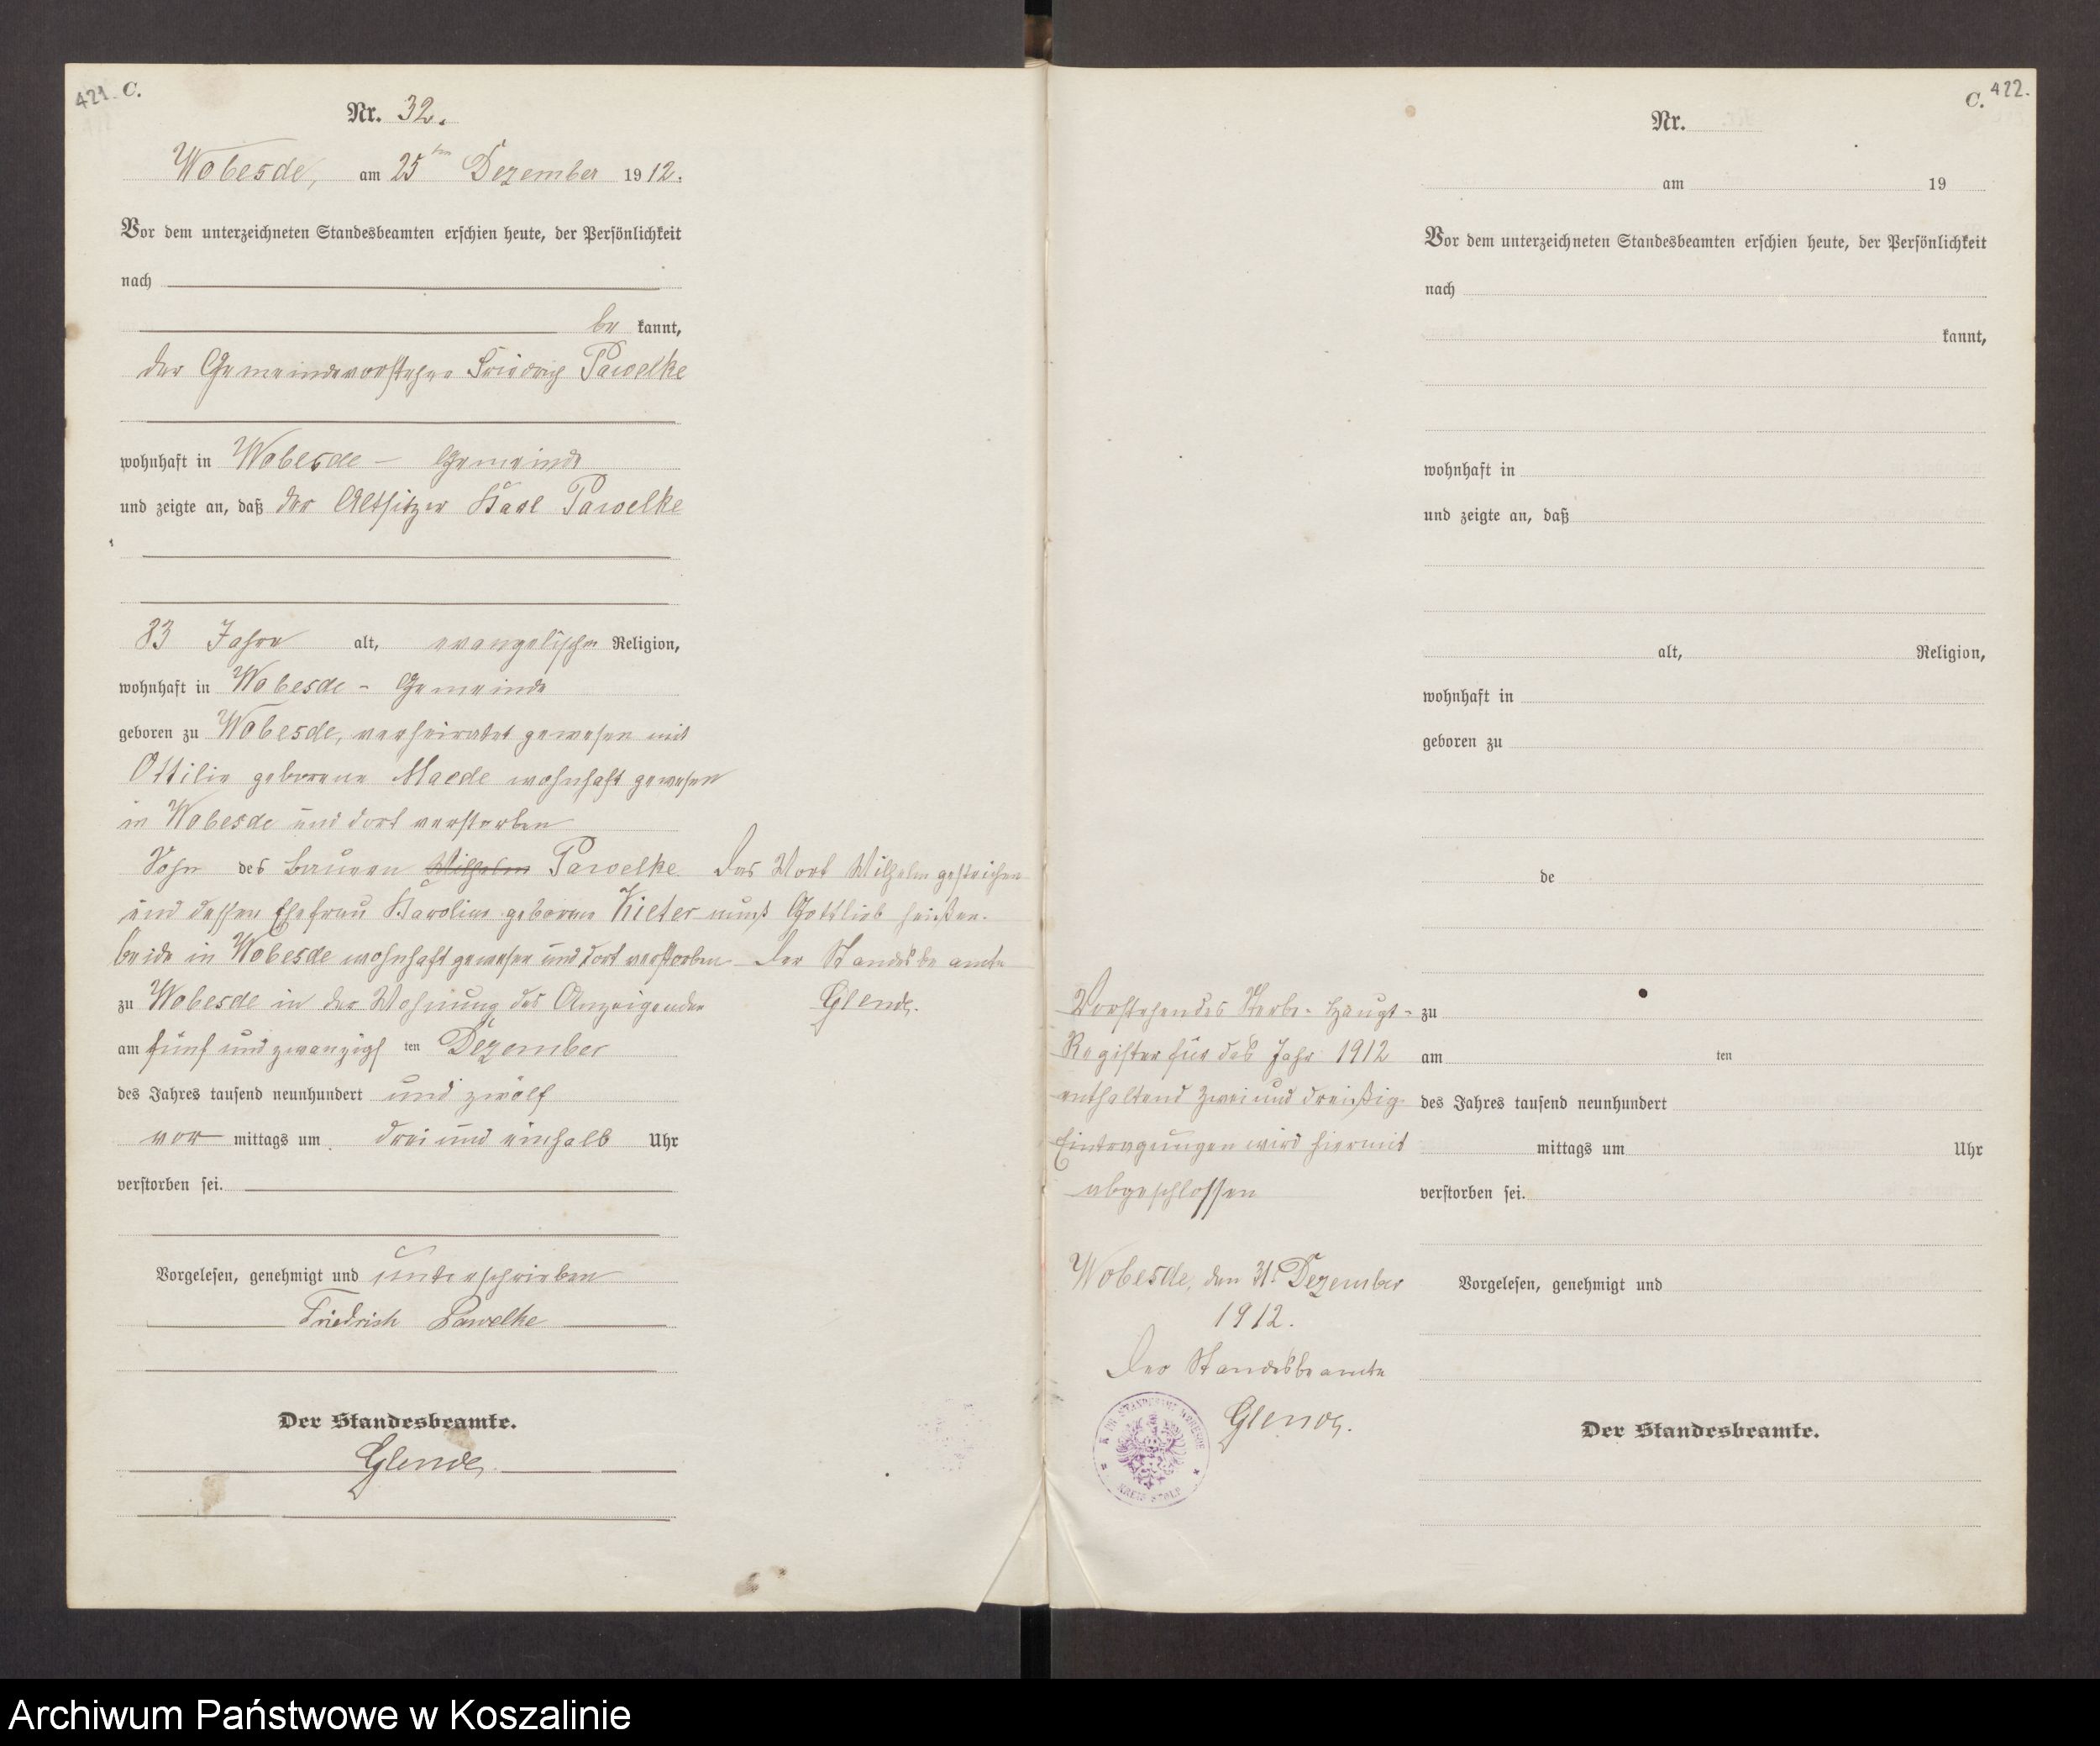 421. C.
Nr. 32.
Wobesde, am 25ten Dezember 1912.
Vor dem unterzeichneten Standesbeamten erschien heute, der Persönlichkeit
nach
be kannt,
der Gemeindevorsteher Friedrich Pawelke
wohnhaft in Wobesde - Gemeinde
und zeigte an, daß der Altsitzer Karl Pawelke
83 Jahre alt, evangelischer Religion,
wohnhaft in Wobesde - Gemeinde
geboren zu Wobesde, verheiratet gewesen mit
Ottilie geborene Maede wohnhaft gewesen
in Wobesde und dort verstorben
Sohn des Bauern Wilhelm Pawelke
und dessen Ehefrau Karoline geborene Kieter
beide in Wobesde wohnhaft gewesen und dort verstorben
zu Wobesde in der Wohnung des Anzeigenden
am fünf und zwanzigs ten Dezember
des Jahres tausend neunhundert und zwölf
vor mittags um drei und einhalb Uhr
verstorben sei.
Vorgelesen, genehmigt und unterschrieben
Friedrich Pawelke
Der Standesbeamte.
Glende.
Das Wort Wilhelm gestrichen
muß Gottlieb heißen.
Der Standesbeamte
Glende.
Vorstehendes Sterbe-Haupt-
Register für das Jahr 1912
enthaltend zwei und dreißig
Eintragungen wird hiermit
abgeschlossen
Wobesde, den 31. Dezember
1912.
Der Standesbeamte
Glende.
STANDESAMT WOBESDE
KREIS STOLP
C. 422.
Nr.
am 19
Vor dem unterzeichneten Standesbeamten erschien heute, der Persönlichkeit
nach
kannt,
wohnhaft in
und zeigte an, daß
alt, Religion,
wohnhaft in
geboren zu
de
zu
am ten
des Jahres tausend neunhundert
mittags um Uhr
verstorben sei.
Vorgelesen, genehmigt und
Der Standesbeamte.
Archiwum Państwowe w Koszalinie